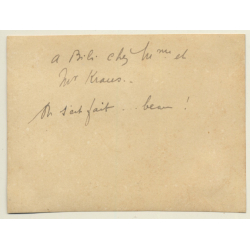 a Bili chez Mme et
Mr Kraus..
On s'est fait ... beau !